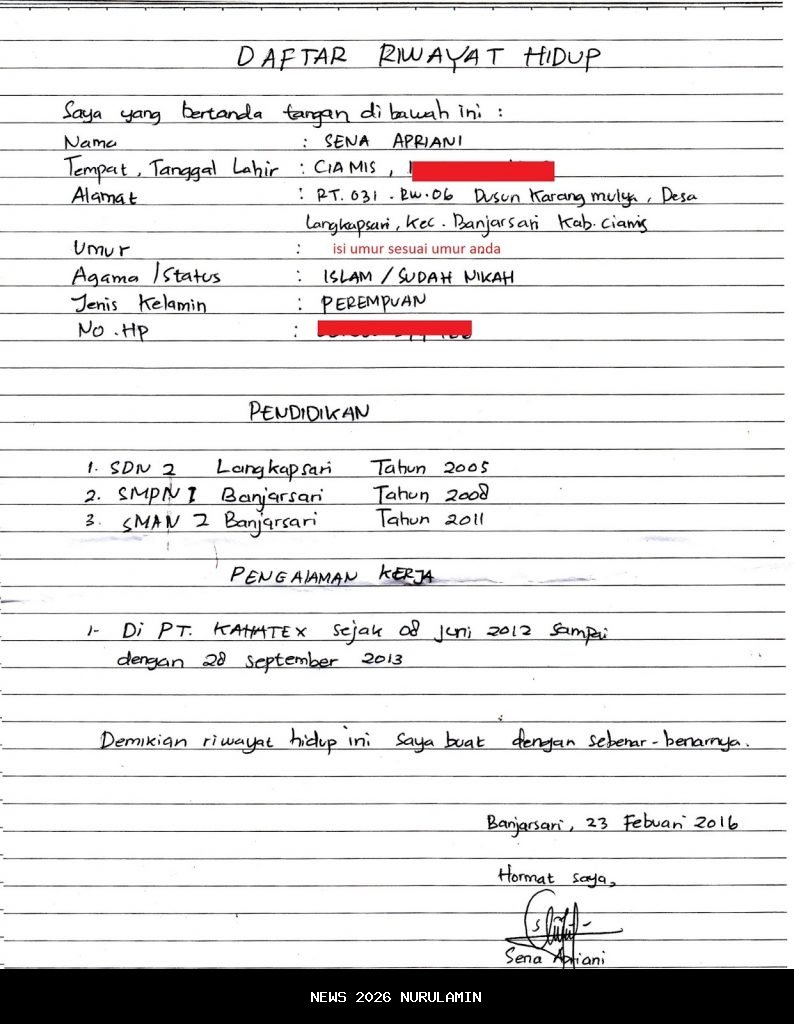 DAFTAR RIWAYAT HIDUP
Saya yang bertanda tangan di bawah ini :
Nama : SENA APRIANI
Tempat, Tanggal Lahir : CIAMIS ,
Alamat : RT. 031 . RW. 06 Dusun Karang mulya , Desa
Langkapsari, Kec. Banjarsari Kab. Ciamis
Umur : isi umur sesuai umur anda
Agama / Status : ISLAM / SUDAH NIKAH
Jenis Kelamin : PEREMPUAN
No . HP :
PENDIDIKAN
1. SDN 2 Langkapsari Tahun 2005
2. SMPN 1 Banjarsari Tahun 2008
3. SMAN 2 Banjarsari Tahun 2011
PENGALAMAN KERJA
1- Di PT. KAHATEX sejak 08 Juni 2012 Sampai
dengan 28 september 2013
Demikian riwayat hidup ini saya buat dengan sebenar-benarnya.
Banjarsari, 23 Febuari 2016
Hormat saya,
Sena Apriani
NEWS 2026 NURULAMIN